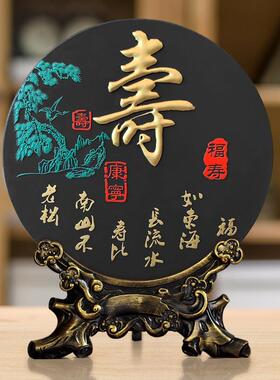 壽
福寿
康寧
壽
福
如東海
長流水
寿比
南山不
老松